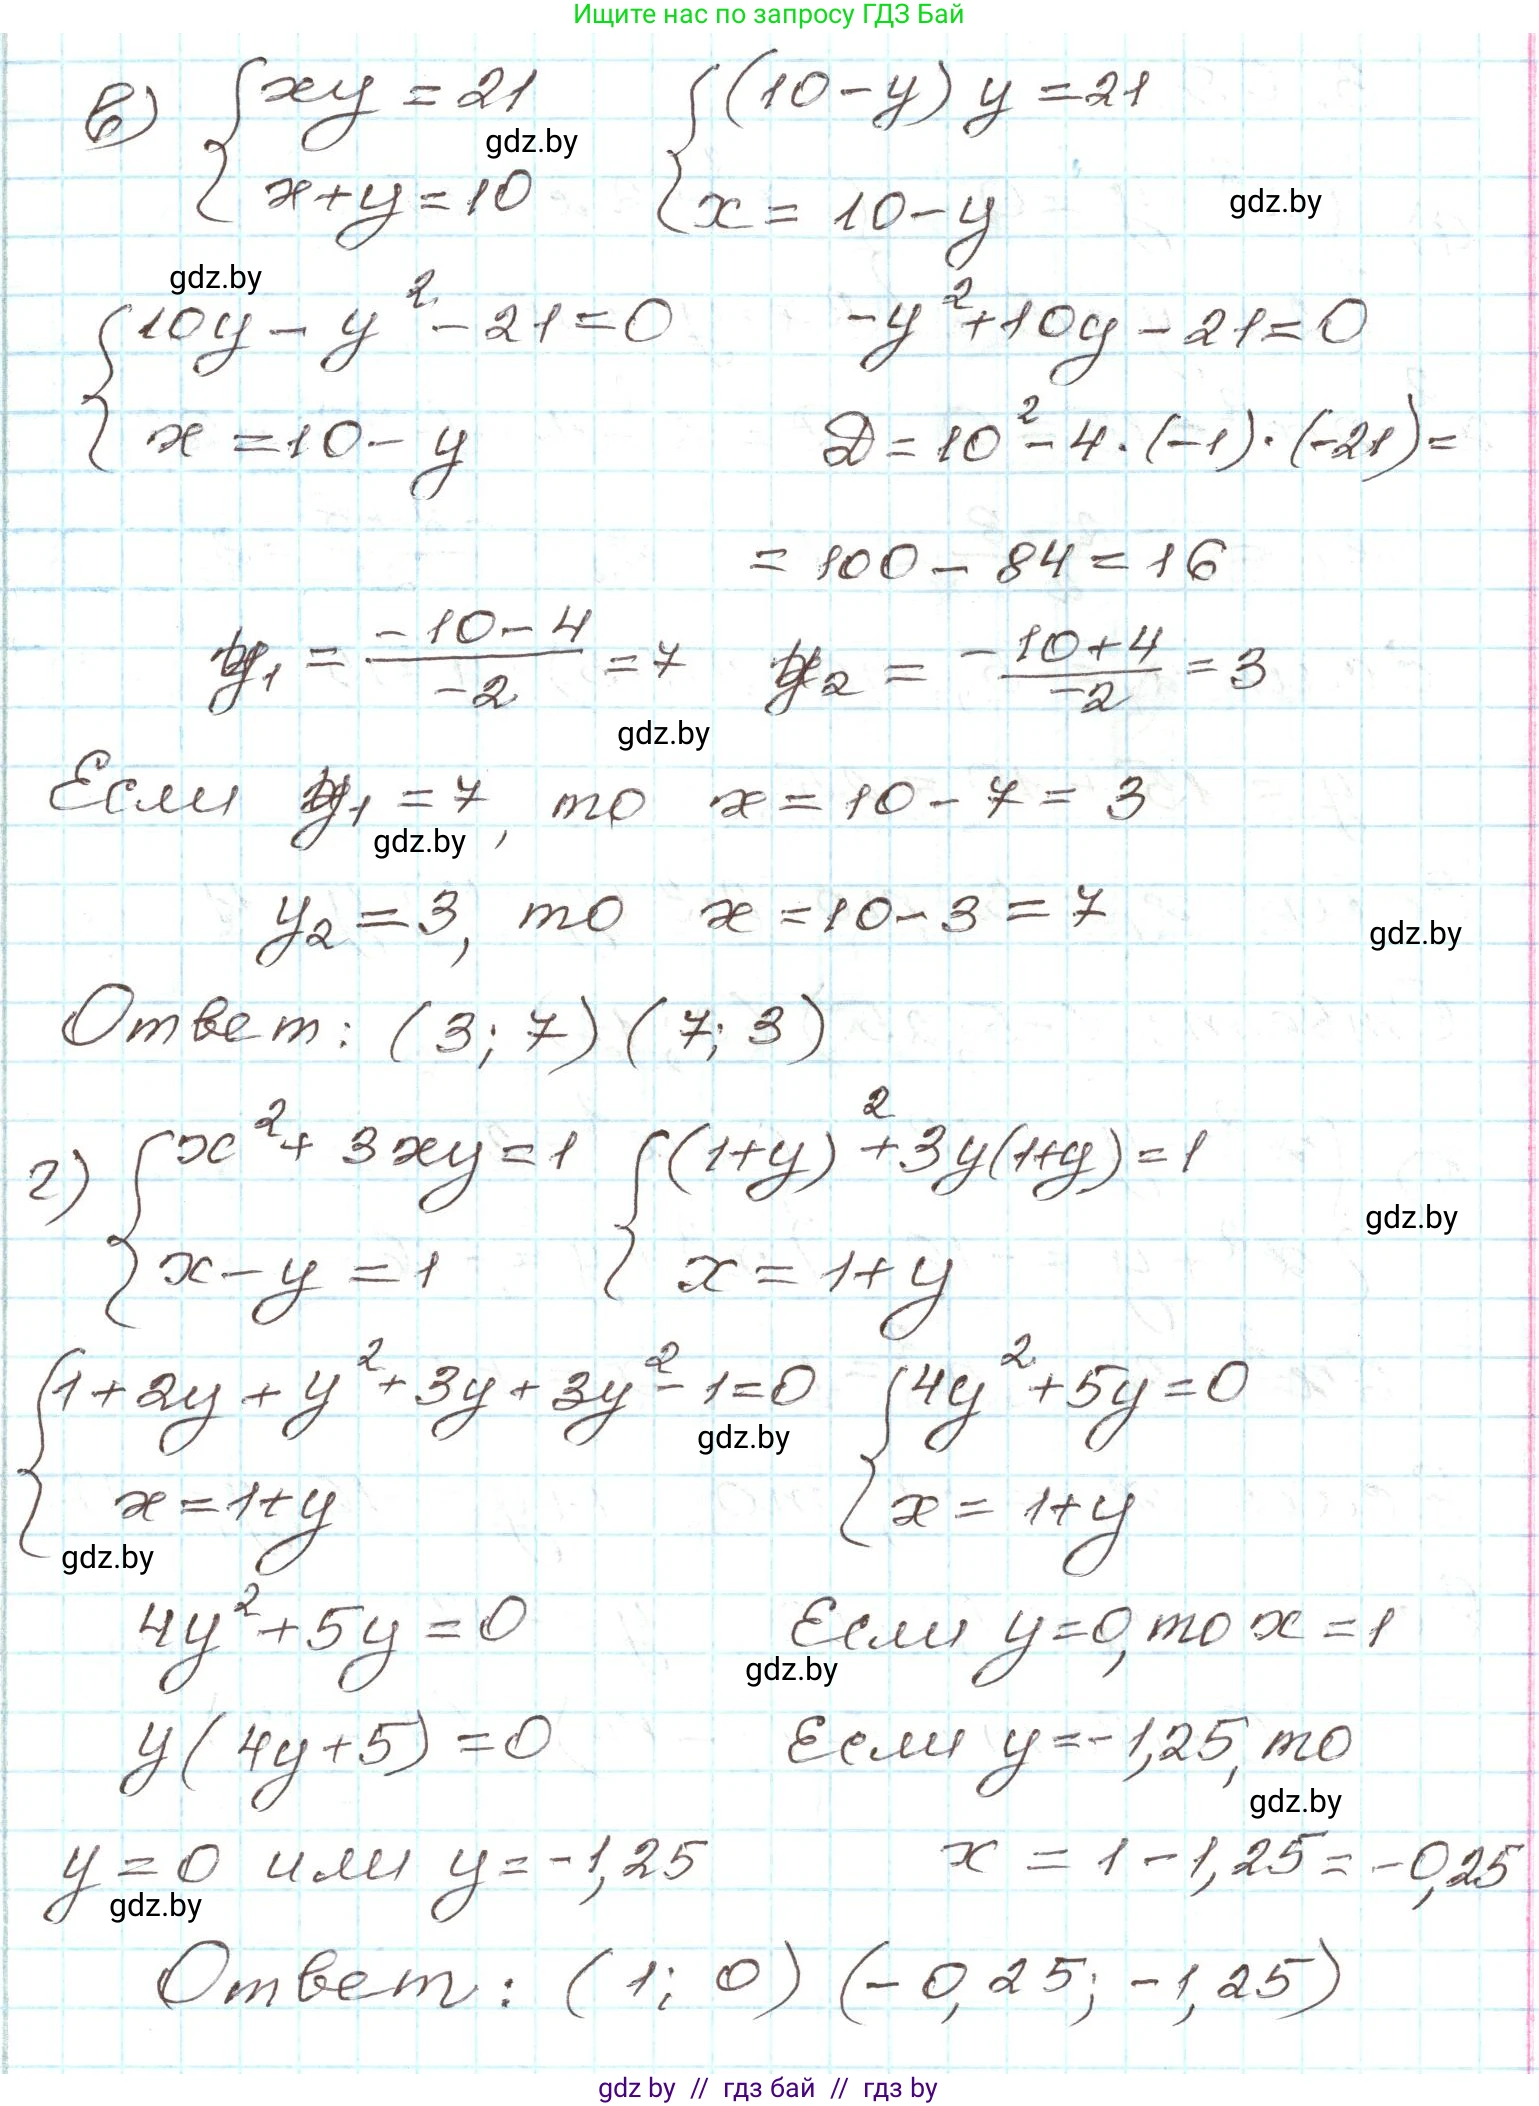 Ищите нас по запросу ГДЗ Бай
в) { xy = 21 { (10 - y) y = 21
gdz.by
x + y = 10 x = 10 - y
gdz.by
gdz.by
{ 10y - y² - 21 = 0 -y² + 10y - 21 = 0
x = 10 - y D = 10² - 4 · (-1) · (-21) =
= 100 - 84 = 16
y₁ = (-10 - 4)/(-2) = 7 y₂ = (-10 + 4)/(-2) = 3
gdz.by
Если y₁ = 7, то x = 10 - 7 = 3
gdz.by
y₂ = 3, то x = 10 - 3 = 7
gdz.by
Ответ: (3; 7) (7; 3)
г) { x² + 3xy = 1 { (1+y)² + 3y(1+y) = 1
gdz.by
x - y = 1 x = 1 + y
{ 1 + 2y + y² + 3y + 3y² - 1 = 0 { 4y² + 5y = 0
gdz.by
x = 1+y x = 1+y
gdz.by
4y² + 5y = 0 Если y = 0, то x = 1
gdz.by
y(4y + 5) = 0 Если y = -1,25, то
gdz.by
y = 0 или y = -1,25 x = 1 - 1,25 = -0,25
gdz.by
Ответ: (1; 0) (-0,25; -1,25)
gdz by // гдз бай // гдз by